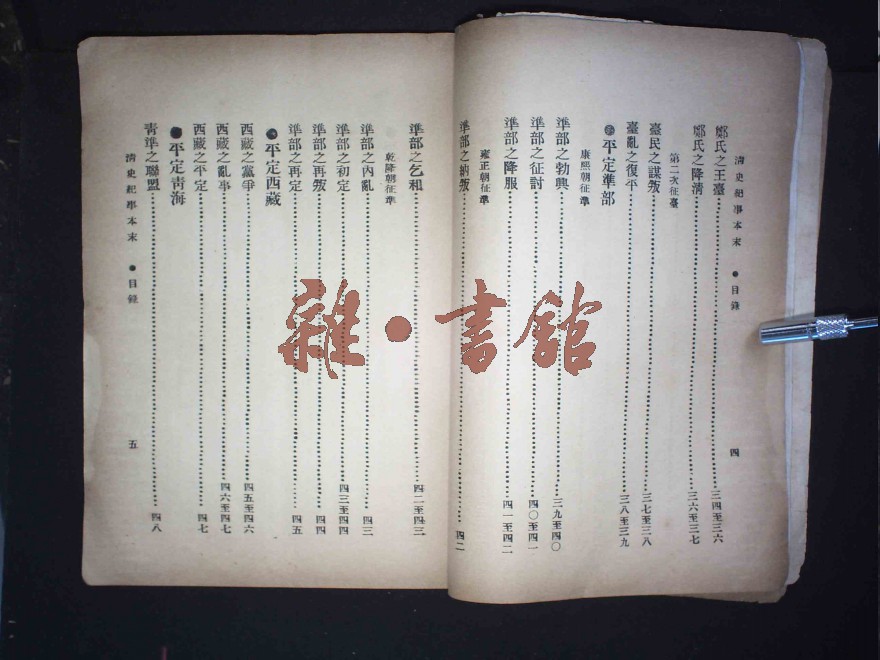 清史紀事本末 ●目錄 四
鄭氏之王臺 三四至三六
鄭氏之降清 三六至三七
第二次征臺
臺民之謀叛 三七至三八
臺亂之復平 三八至三九
●平定準部
康熙朝征準
準部之勃興 三九至四〇
準部之征討 四〇至四一
準部之降服 四一至四二
雍正朝征準
準部之納叛 四二
準部之乞和 四二至四三
乾隆朝征準
準部之內亂 四三
準部之初定 四三至四四
準部之再叛 四四
準部之再定 四五
●平定西藏
西藏之黨爭 四五至四六
西藏之亂事 四六至四七
西藏之平定 四七
●平定青海
青準之聯盟 四八
清史紀事本末 ●目錄 五
雜·書館